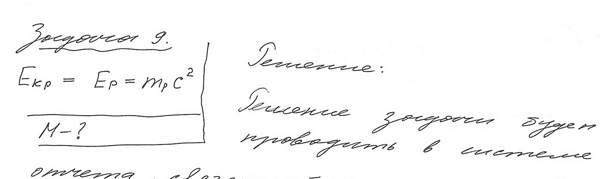 Задача 9.
Eкр = Eр = mрc²
M-?
Решение:
Решение задачи будем
проводить в системе
отчета